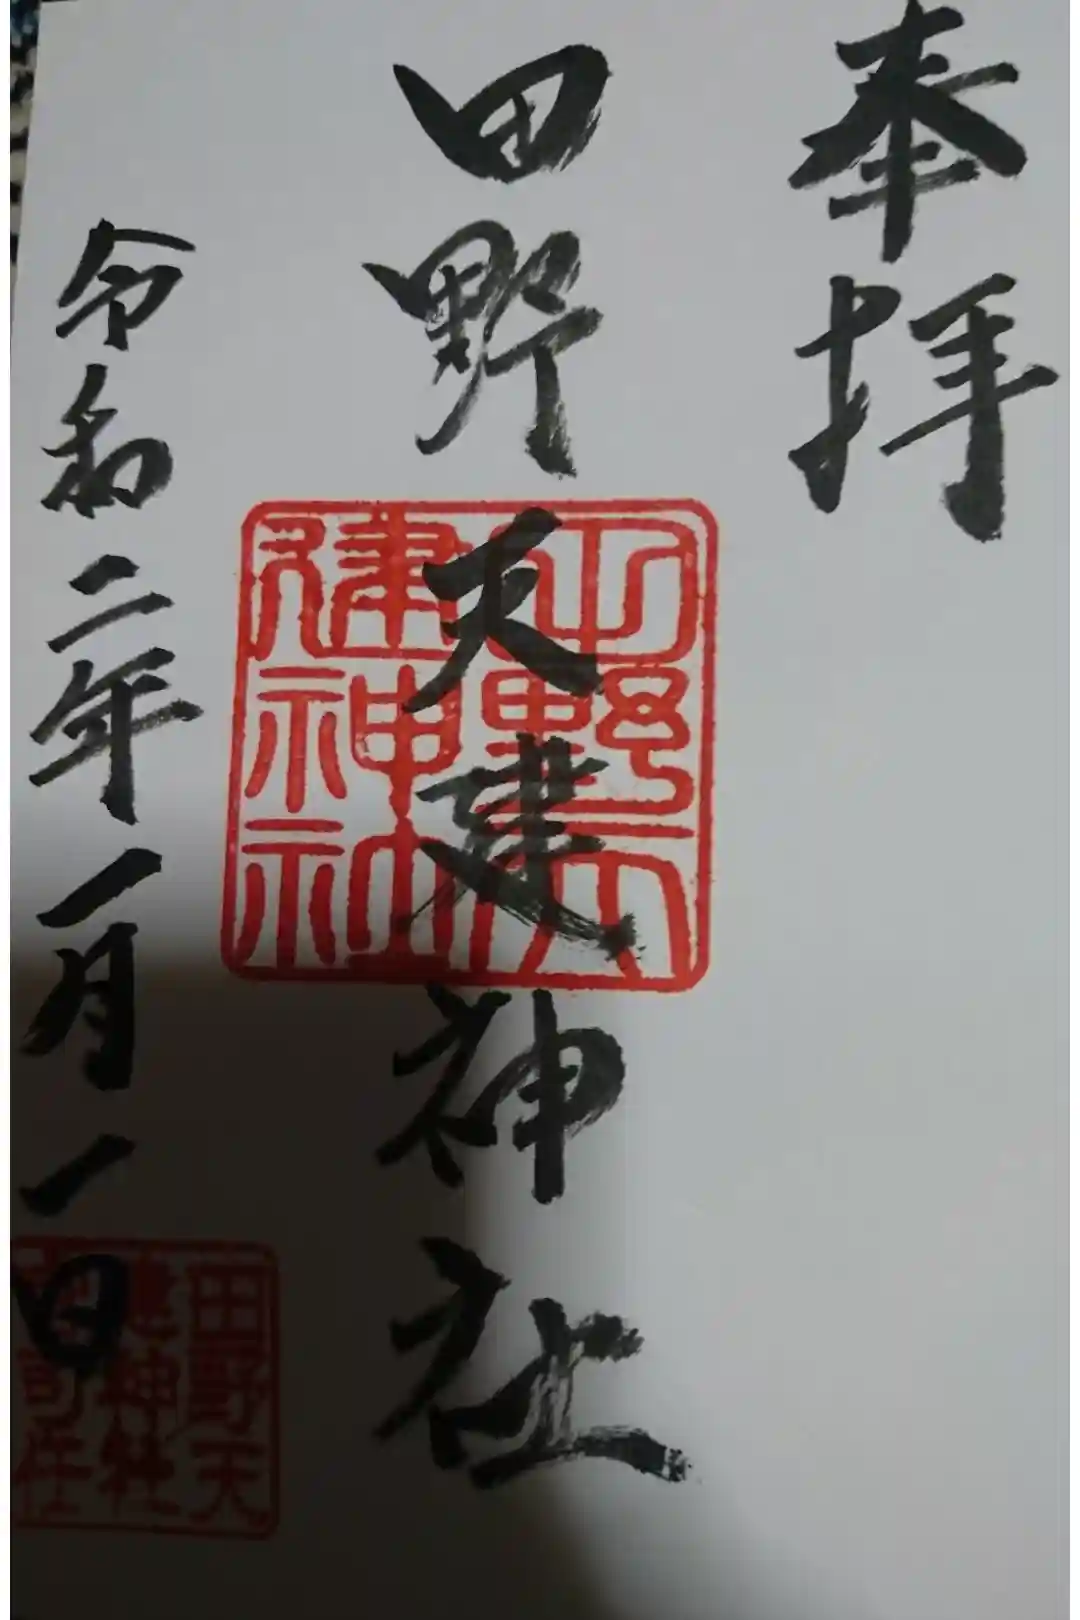 奉拝
田野天建神社
田野天
建神社
令和二年一月一日
田野天
建神社